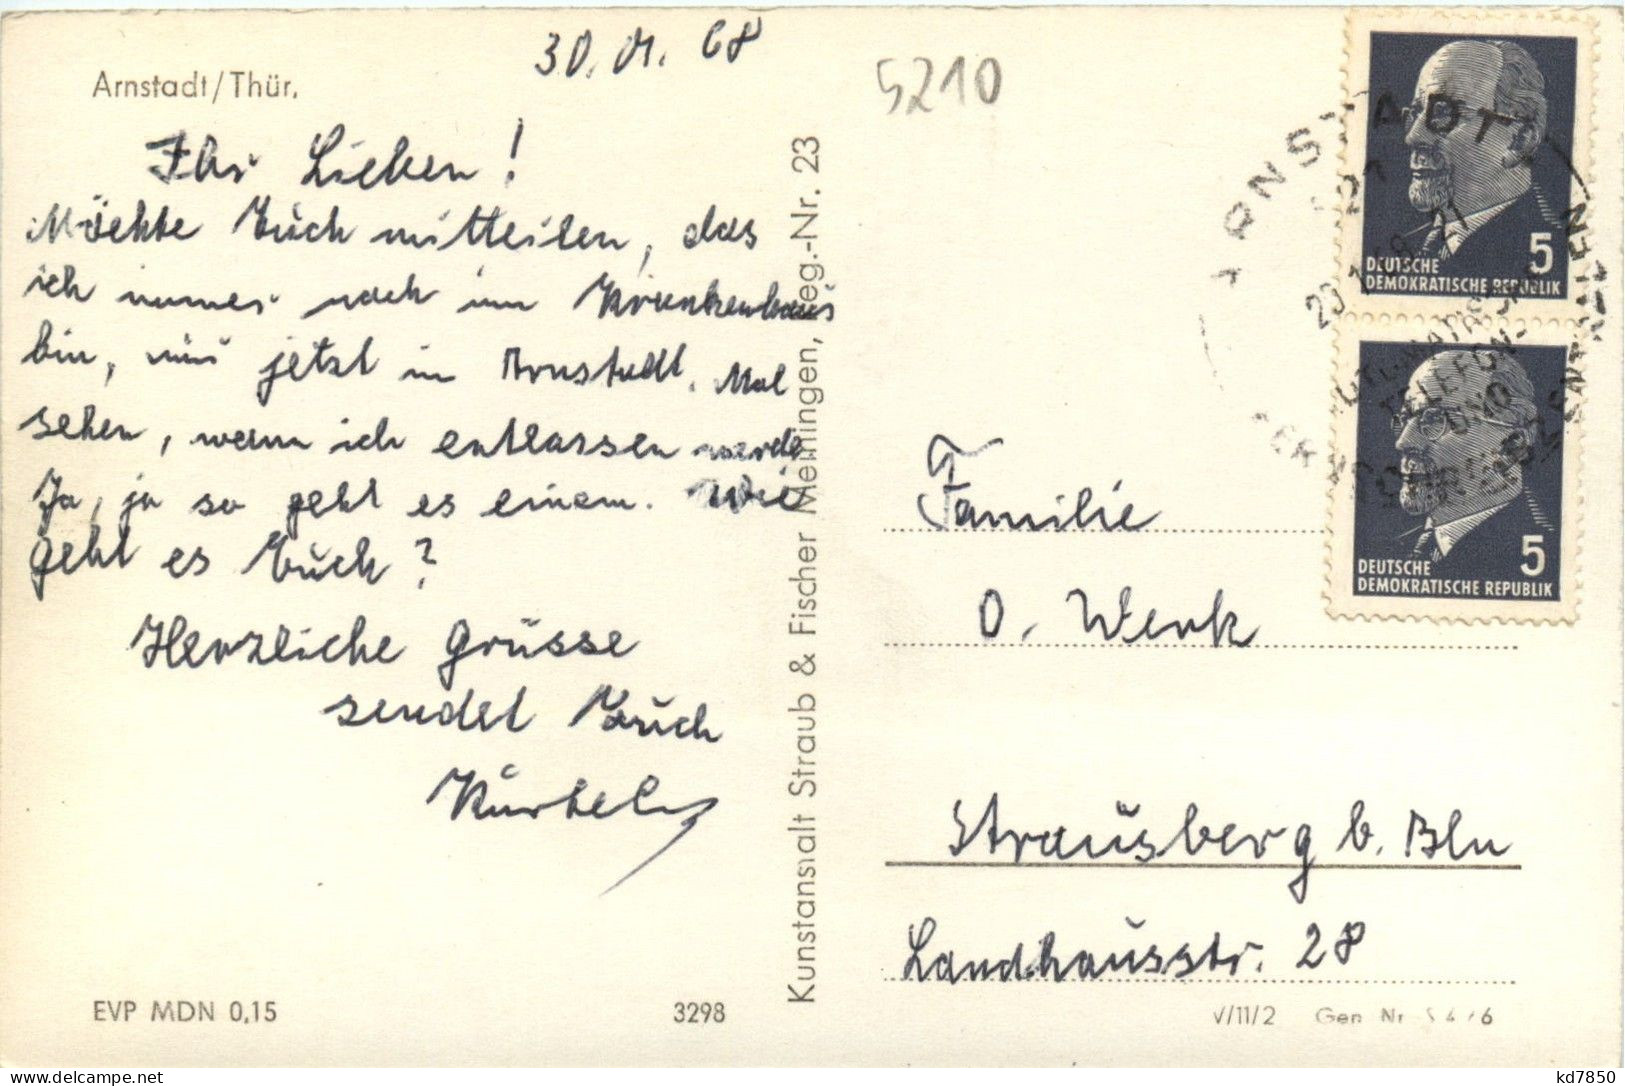 Arnstadt/Thür.
30. 01. 68
5210
Ihr Lieben!
Möchte Euch mitteilen, das
ich immer noch im Krankenhaus
bin, nur jetzt in Arnstadt. Mal
sehen, wann ich entlassen werde
Ja, ja so geht es einem. Wie
geht es Euch?
Herzliche Grüsse
sendet Euch
EVP MDN 0,15
3298
Kunstanstalt Straub & Fischer Meiningen, Reg.-Nr. 23
ARNSTADT
DEUTSCHE
DEMOKRATISCHE REPUBLIK
5
DEUTSCHE
DEMOKRATISCHE REPUBLIK
5
TELEFON-
UND
Familie
O. Werk
Strausberg b. Bln
Landhausstr. 28
V/11/2 Gen Nr
kd7850